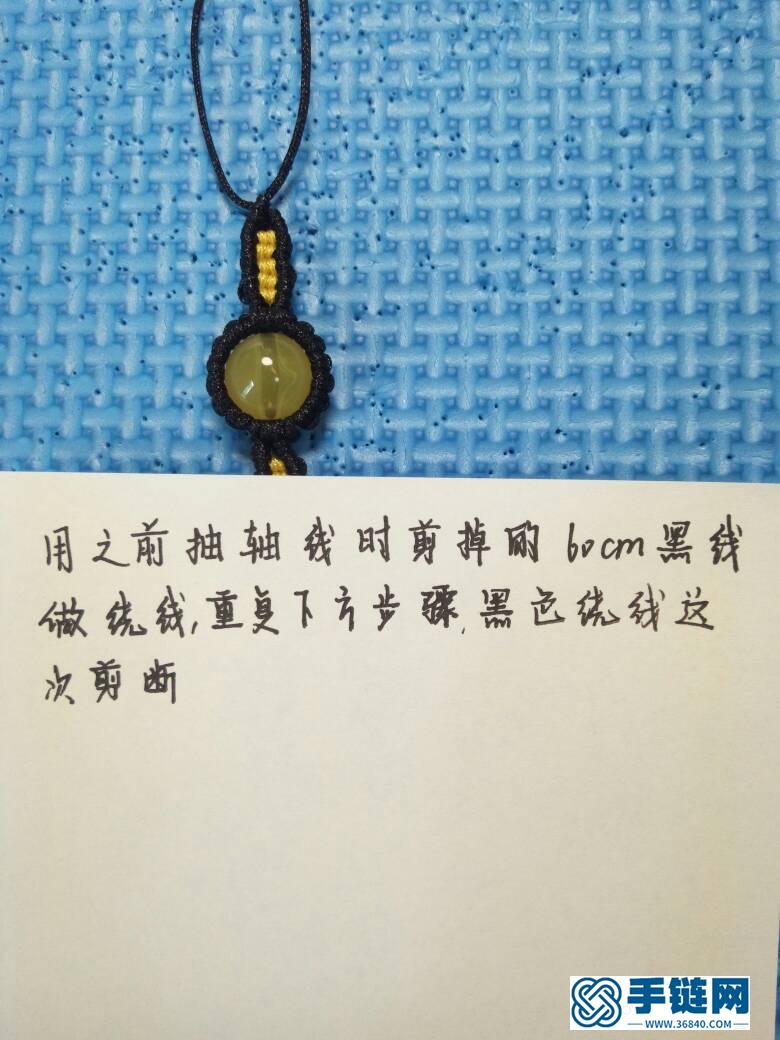 用之前抽轴线时剪掉的60cm黑线
做绕线,重复下方步骤,黑色绕线这
次剪断
手链网
WWW.36840.COM